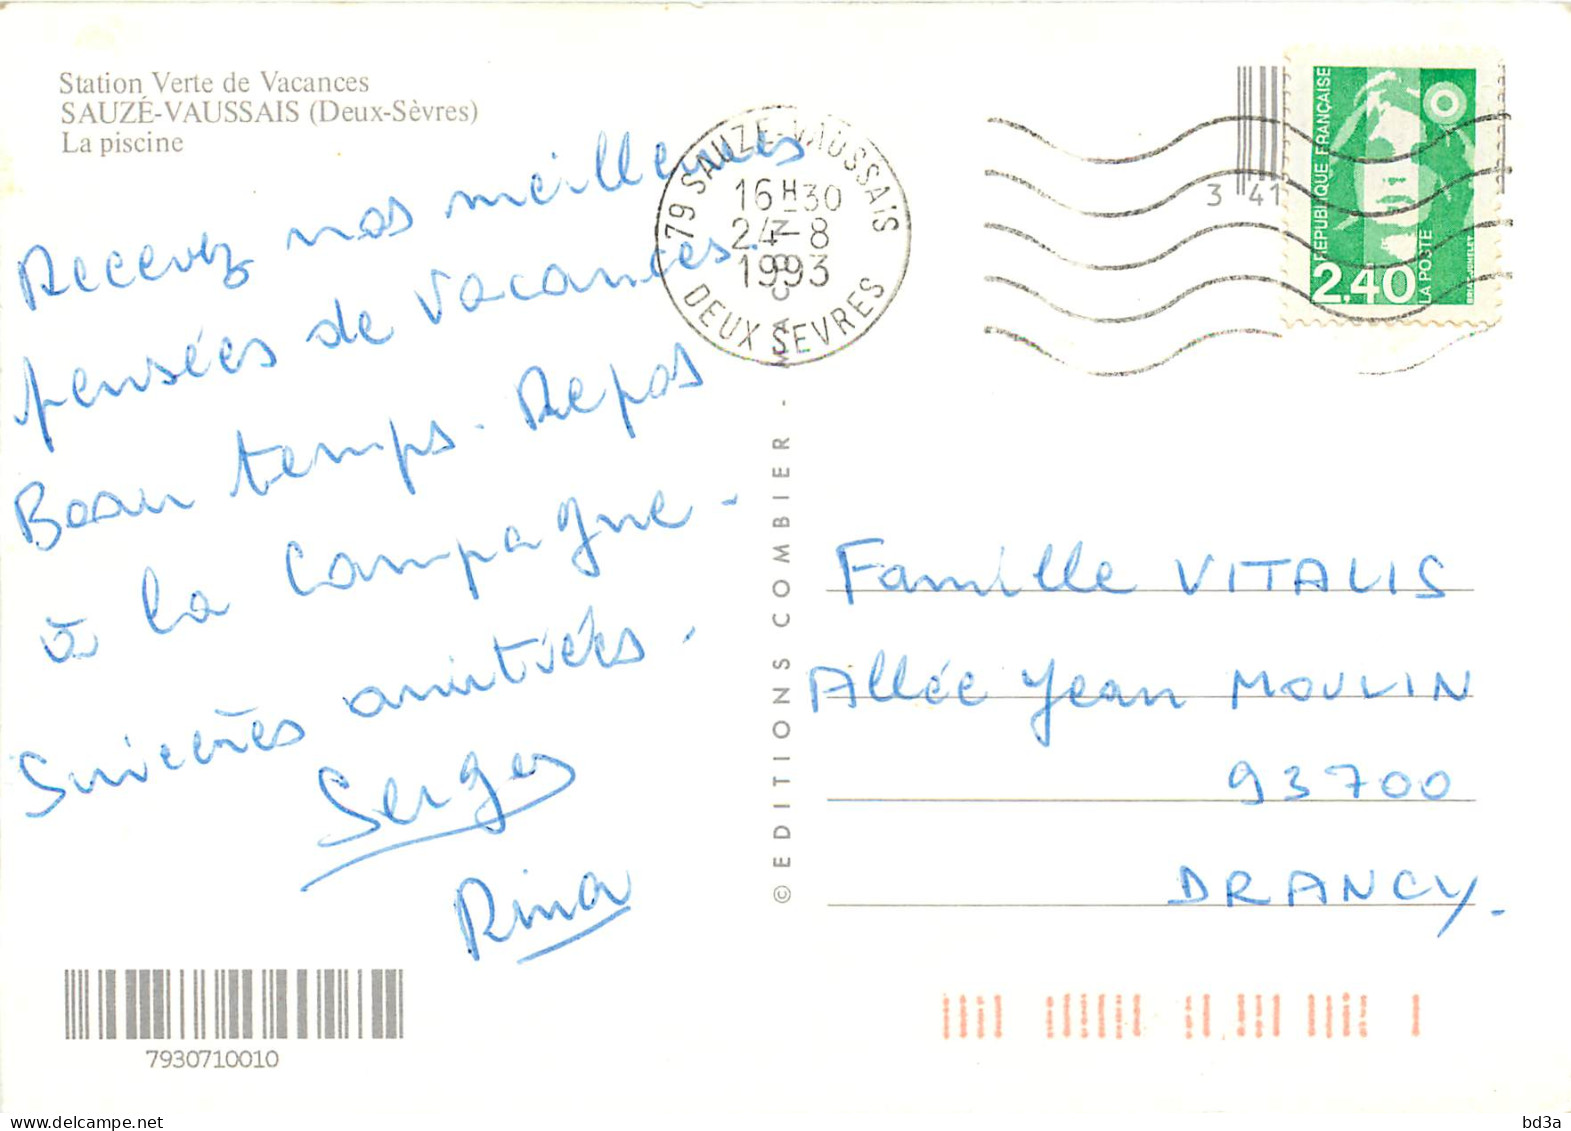 Station Verte de Vacances
SAUZÉ-VAUSSAIS (Deux-Sèvres)
La piscine
Recevez nos meilleures
pensées de vacances.
Beau temps. Repos
à la campagne -
Sincères amitiés.
Serges
Rina
7930710010
© EDITIONS COMBIER - MACON
79 SAUZE-VAUSSAIS
16H30
24-8
1993
DEUX SEVRES
3 41
REPUBLIQUE FRANÇAISE
2.40
LA POSTE
Famille VITALIS
Allée Jean MOULIN
93700
DRANCY.
delcampe.net
bd3a